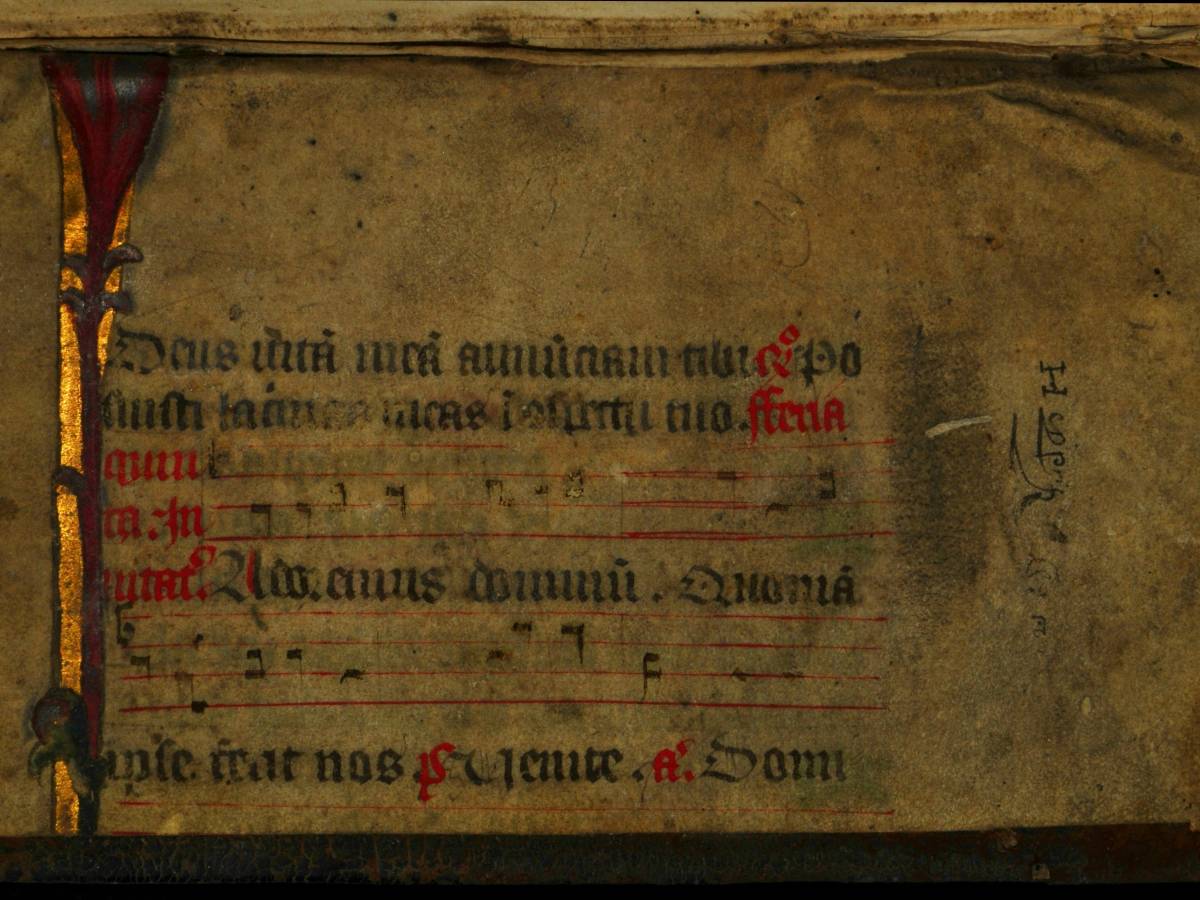 Deus uitā meā annūciaui tibi R̷ Po
suisti lacrimas meas ī ɔspectu tuo. fferia
quin
ta. In
uitat. Adoremus dominū. Quoniā
ipse fecit nos ps Uenite. a. Domi